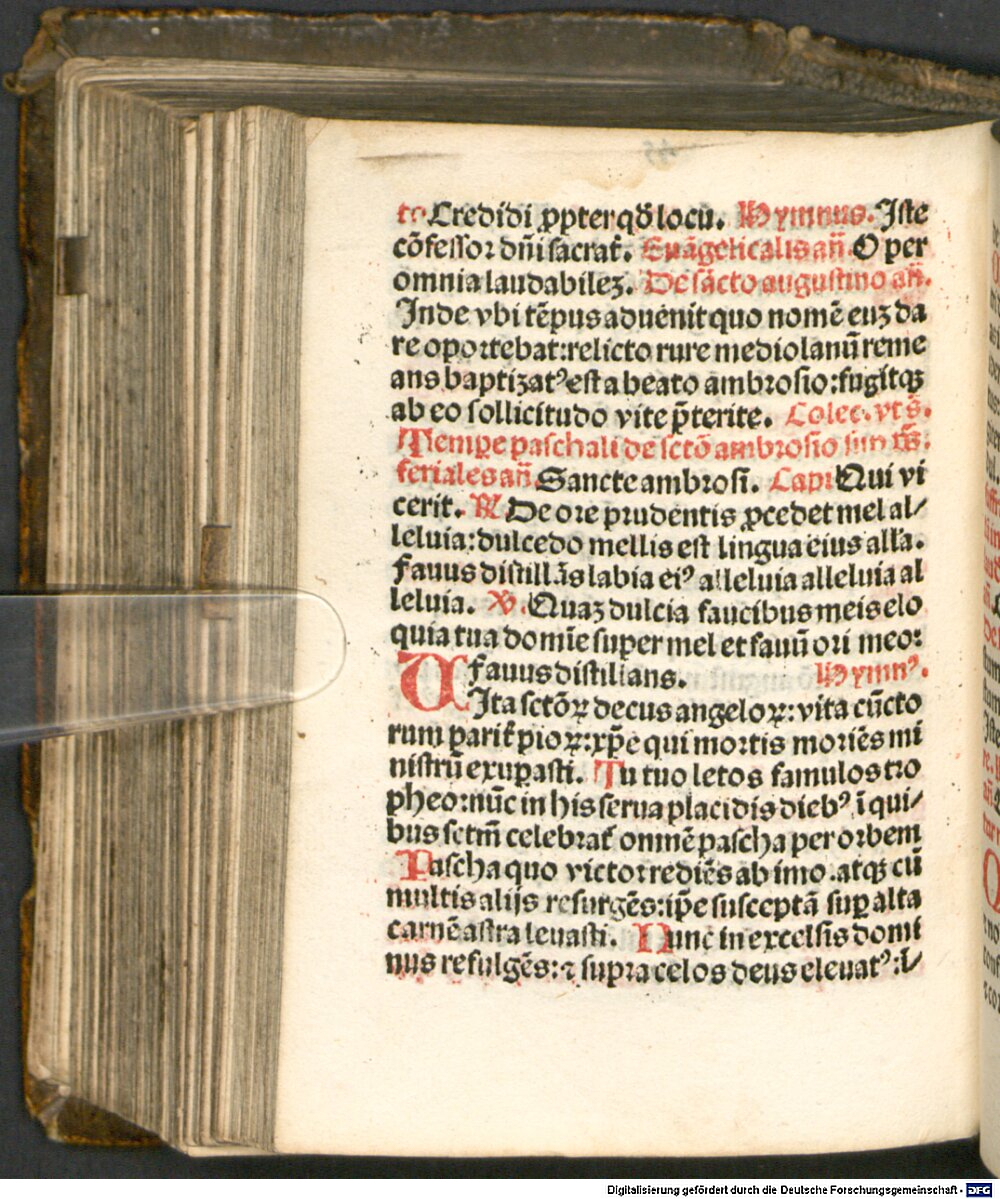 to Credidi ꝓpterqđ locū. Hymnus. Iſte
cōfeſſor dn̄i sacrat̄. Euāgelicalis an̄. O per
omnia laudabilez. De sācto auguſtino an̄.
Inde vbi tēpus aduenit quo nomē euz da
re oportebat: relicto rure mediolanū reme
ans baptizatꝰ eſt a beato ambroſio: fugitqꝫ
ab eo ſollicitudo vite p̄terite. Colec. vt s̄.
Tempe paſchali de sctō ambroſio
feriales an̄. Sancte ambroſi. Capi Qui vi
cerit. R̷ De ore prudentis ꝓcedet mel al/
leluia: dulcedo mellis eſt lingua eius alla.
fauus diſtillās labia eiꝰ alleluia alleluia al
leluia. V̷. Quaz dulcia faucibus meis elo
quia tua domīe ſuper mel et fauū ori meo:
fauus diſtillans. Hymnꝰ.
VIta sctōꝝ decus angeloꝝ: vita cūcto
rum parit̄ pioꝝ: xp̄e qui mortis moriēs mi
niſtrū exupaſti. Tu tuo letos famulos tro
pheo: nūc in his serua placidis diebꝰ ī qui/
bus sctm̄ celebrat̄ omnē paſcha per orbem
Paſcha quo victor rediēs ab imo. atqꝫ cū
multis alijs reſurgēs: ip̄e suſceptā ſuꝑ alta
carnē aſtra leuaſti. Nunc in excelſis domi
nus refulgēs: ⁊ ſupra celos deus eleuatꝰ: l/
Digitalisierung gefördert durch die Deutsche Forschungsgemeinschaft - DFG